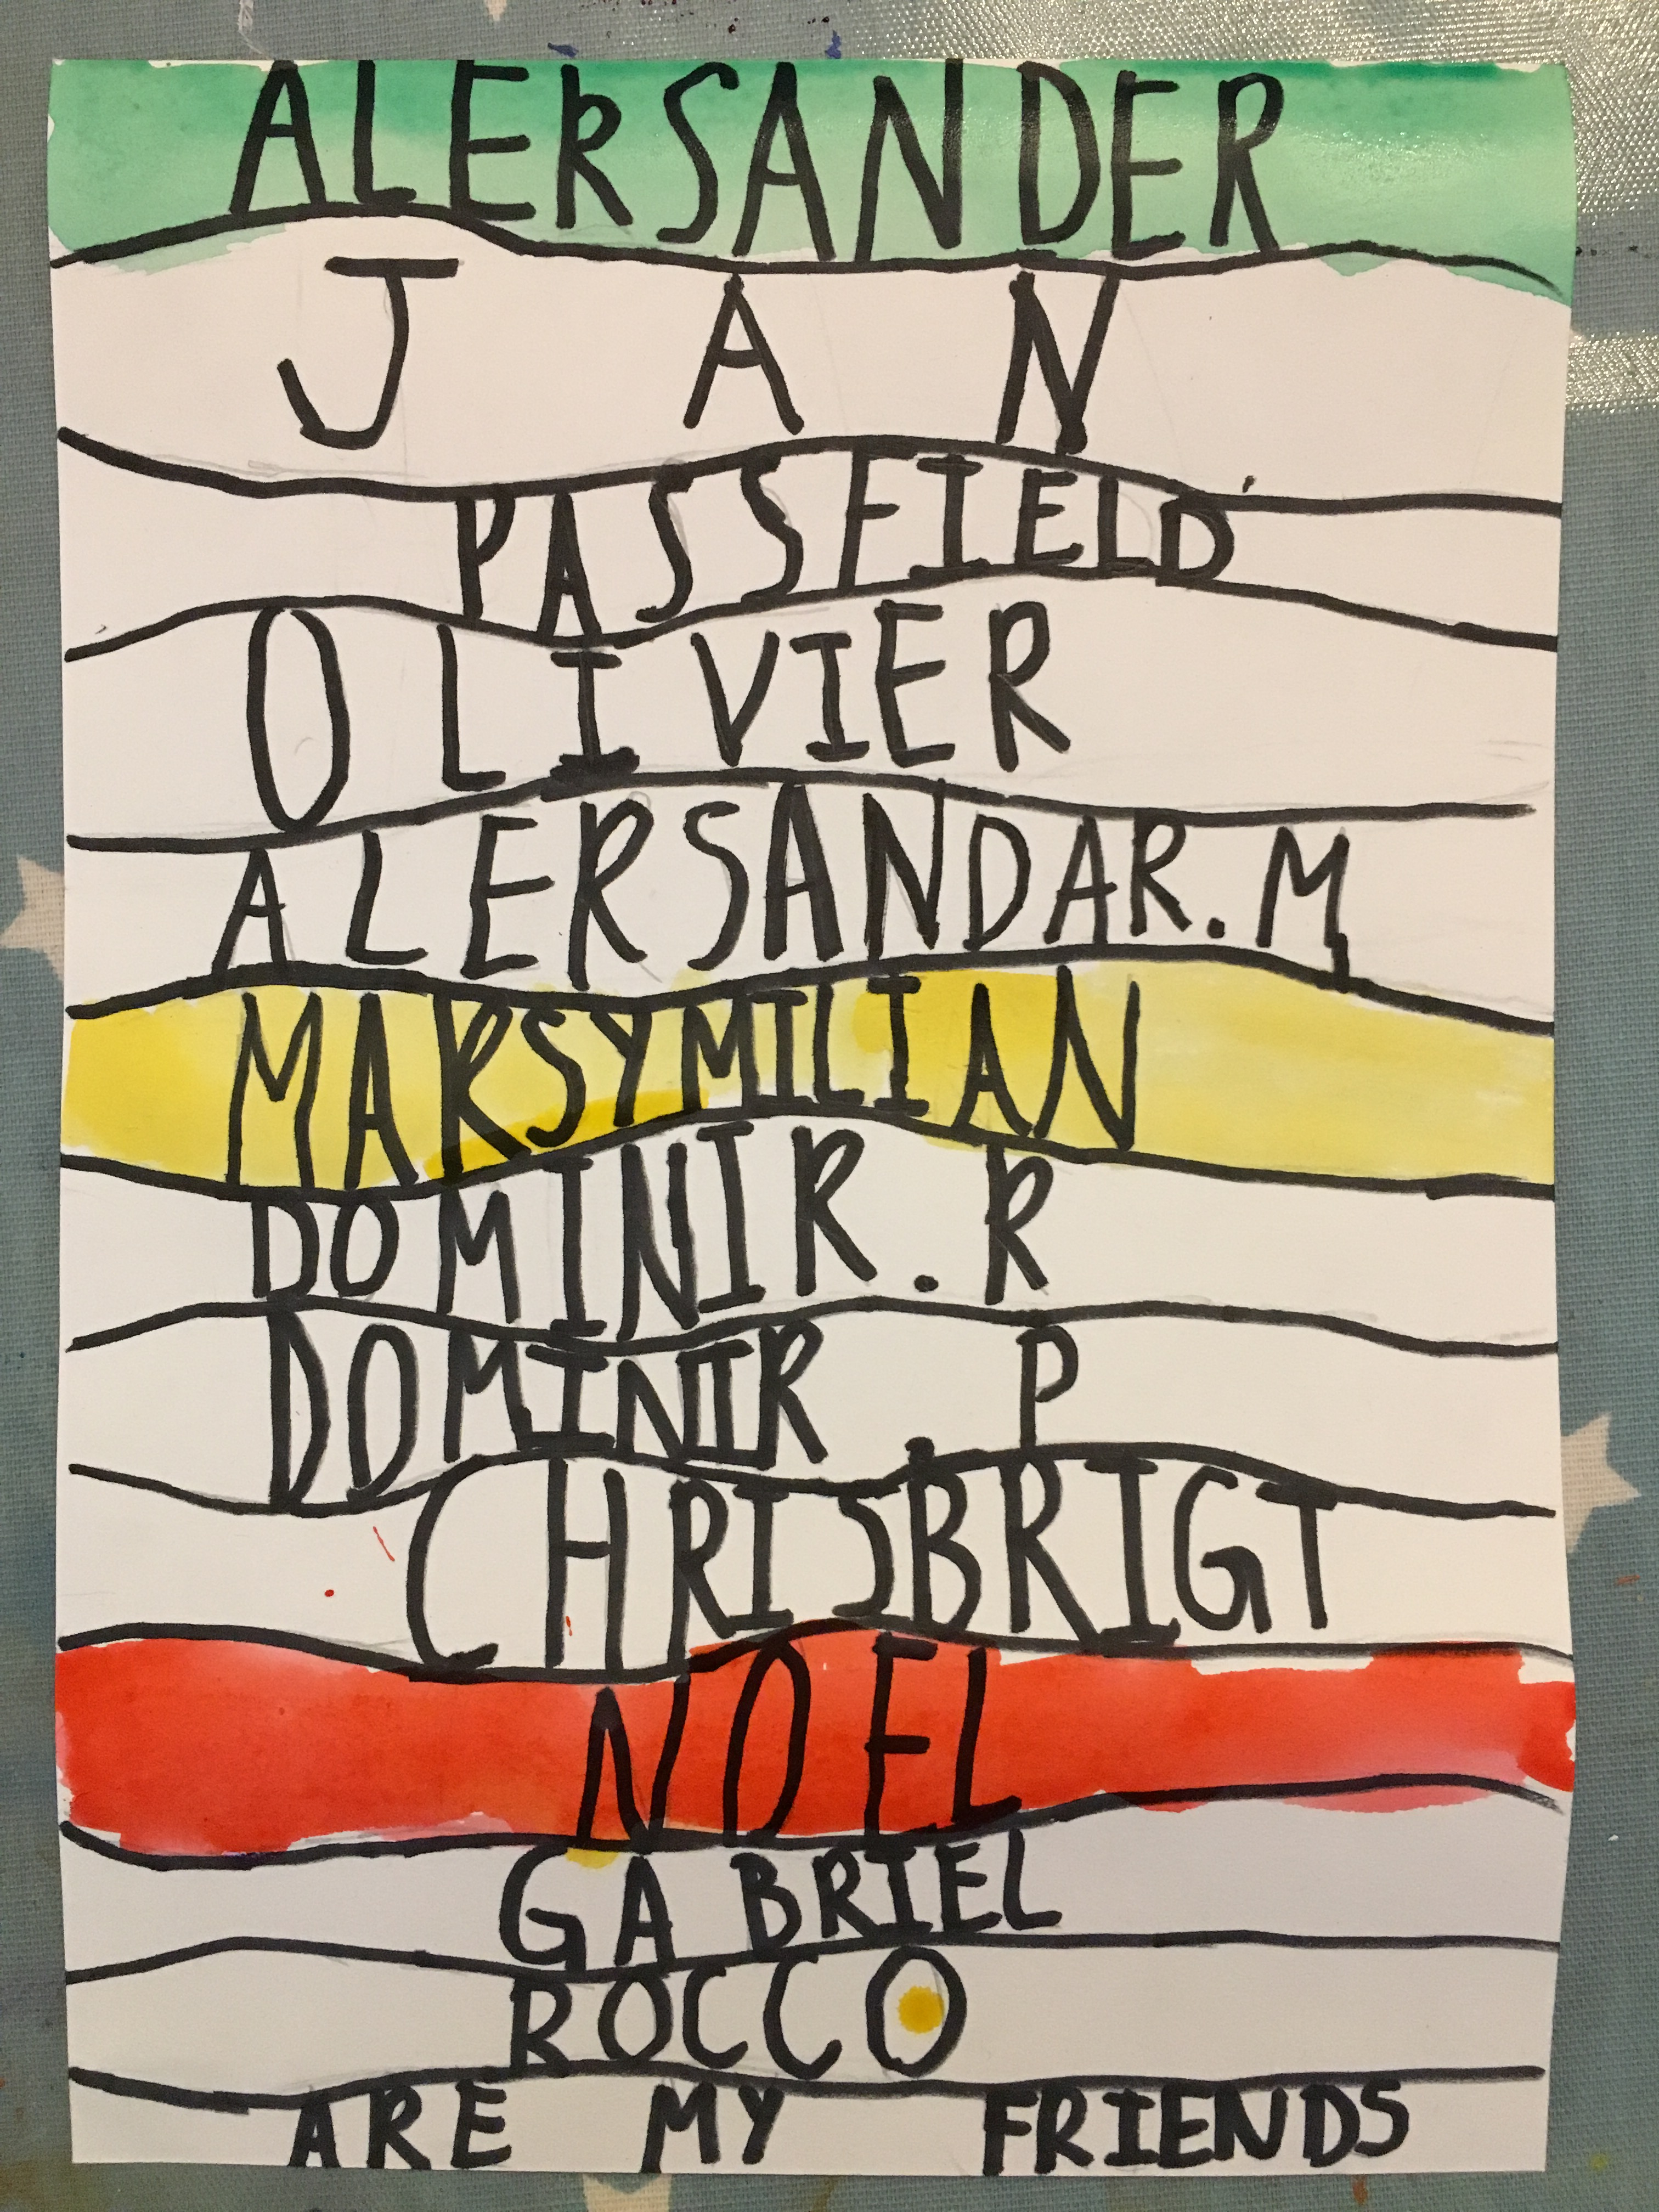 ALERSANDER
JAN
PASSFIELD
OLIVIER
ALERSANDAR.M
MAKSYMILIAN
DOMINIR.R
DOMINIR.P
CHRISBRIGT
NOEL
GABRIEL
ROCCO
ARE MY FRIENDS